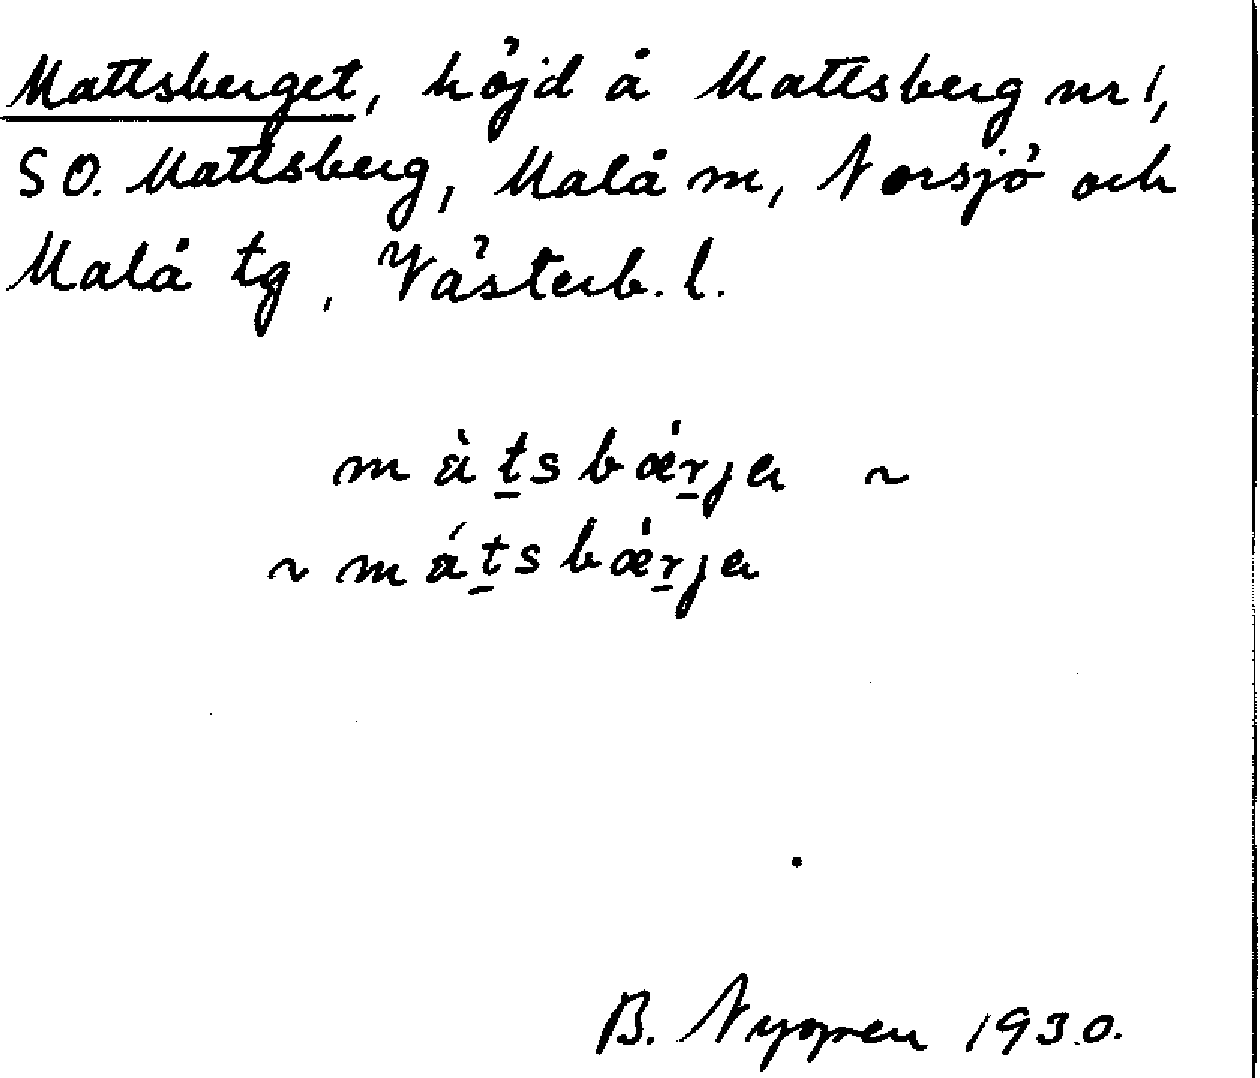 Mattsberget, höjd å Mattsberg nr 1,
SO. Mattsberg, Malå sn, Norsjö och
Malå tg, Västerb. l.
màt̲sbær̲ja ~
~ mát̲sbær̲ja
B. Nygren 1930.